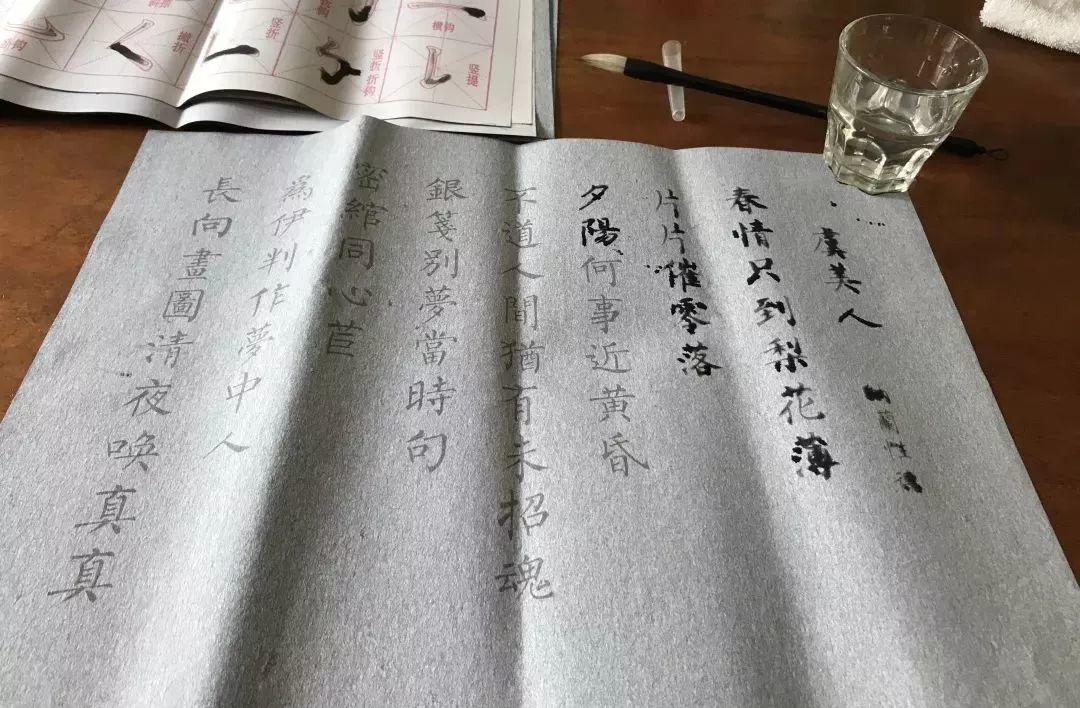 横钩
撇折
竖折
竖折折钩
竖提
虞美人
納蘭性德
春情只到梨花薄
片片催零落
夕陽何事近黄昏
不道人間猶有未招魂
銀箋別夢當時句
密綰同心苣
爲伊判作夢中人
長向畫圖清夜唤真真